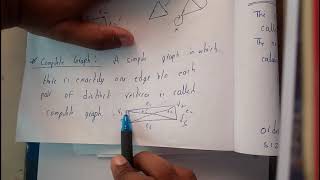 * Complete Graph: A simple graph in which
there is exactly one edge b/w each
pair of distinct vertices is called
complete graph.
e₁
The
calle
The